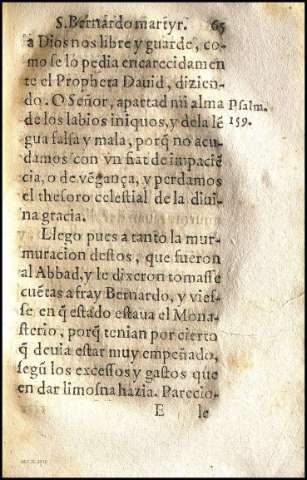 S. Bernardo martyr. 65
a Dios nos libre y guarde, co-
mo se lo pedia encarecidamen-
te el Propheta Dauid, dizien-
do. O Señor, apartad mi alma
Psalm.
de los labios iniquos, y de la lē
159.
gua falsa y mala, porq̃ no acu-
damos con vn fiat de impaciē
cia, o de vēgança, y perdamos
el thesoro celestial de la diui-
na gracia.
Llego pues a tanto la mur-
muracion destos, que fueron
al Abbad, y le dixeron tomasse
cuētas a fray Bernardo, y vies-
se en q̃ estado estaua el Mona-
sterio, porq̃ tenian por cierto
q̃ deuia estar muy empeñado,
segū los excessos y gastos que
en dar limosna hazia. Parecio-
E le